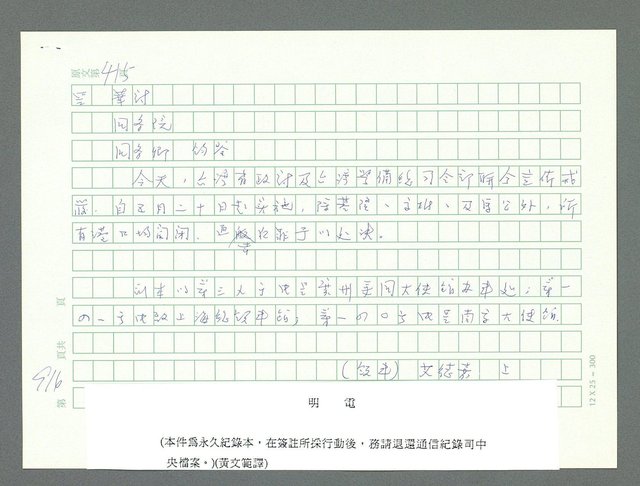 原文第415頁
呈 華府
國務院
國務卿 鈞啓
今天，台灣省政府及台灣警備總司令部聯合宣佈戒
嚴．自五月二十日起實施，除基隆、高雄、及馬公外，所
有港口均關閉．違者 予以處決。
副本以第三九號電呈廣州美國大使館辦事處；第一
四一號電致上海總領事館；第一四〇號電呈南京大使館．
（領事） 艾德嘉 上
516
第 頁共 頁
12 X 25 - 300
明 電
(本件爲永久紀錄本，在簽註所採行動後，務請退還通信紀錄司中
央檔案。)(黃文範譯)